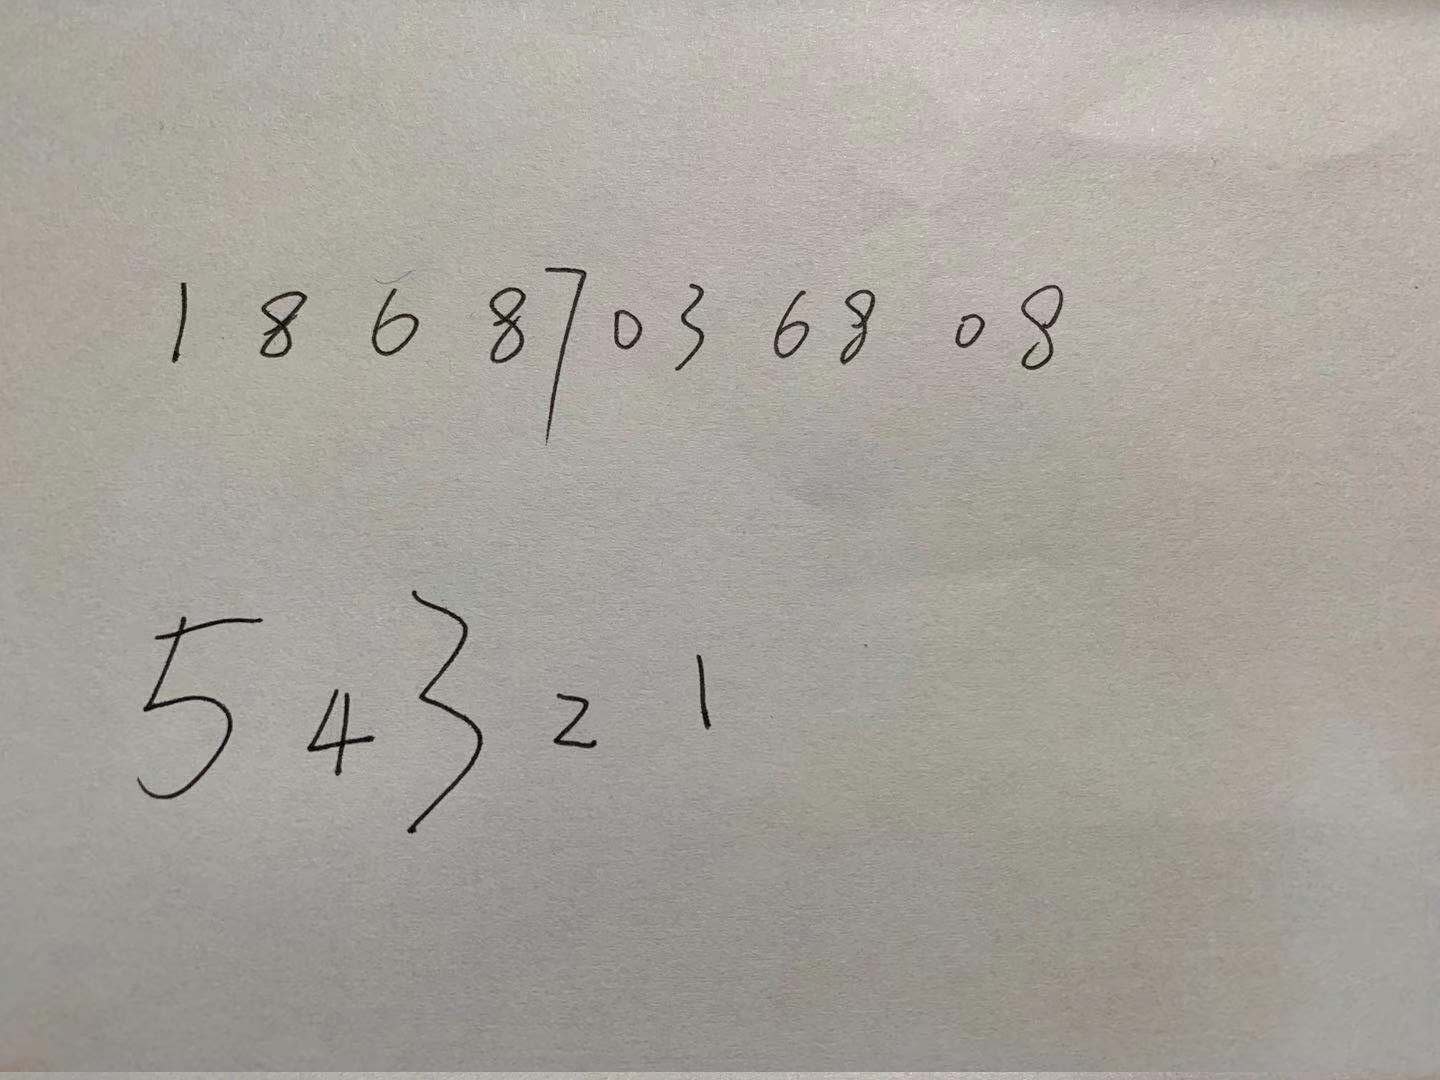 1 8 6 8 7 0 3 6 8 0 8
5 4 3 2 1